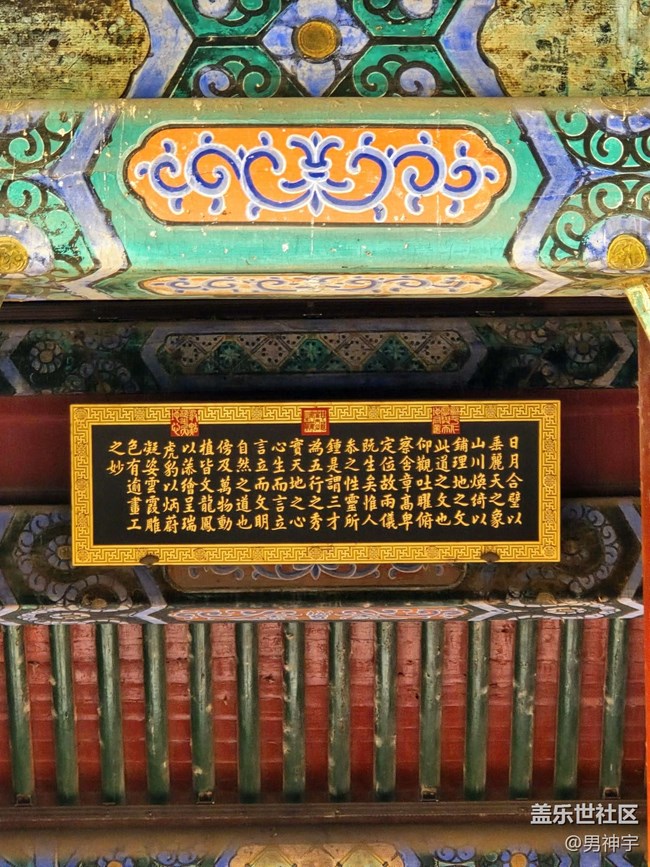 日月合璧以
垂麗天之象
山川煥綺以
鋪理地之文
此道之文也
仰觀吐曜俯
察含章高卑
定位故兩儀
既生矣惟人
叅之性靈所
鍾是謂三才
為五行之秀
實天地之心
心生而言立
言立而文明
自然之道也
傍及萬物動
植皆文龍鳳
以藻繪呈瑞
虎豹以炳蔚
凝姿雲霞雕
色有逾畫工
之妙
盖乐世社区
@男神宇